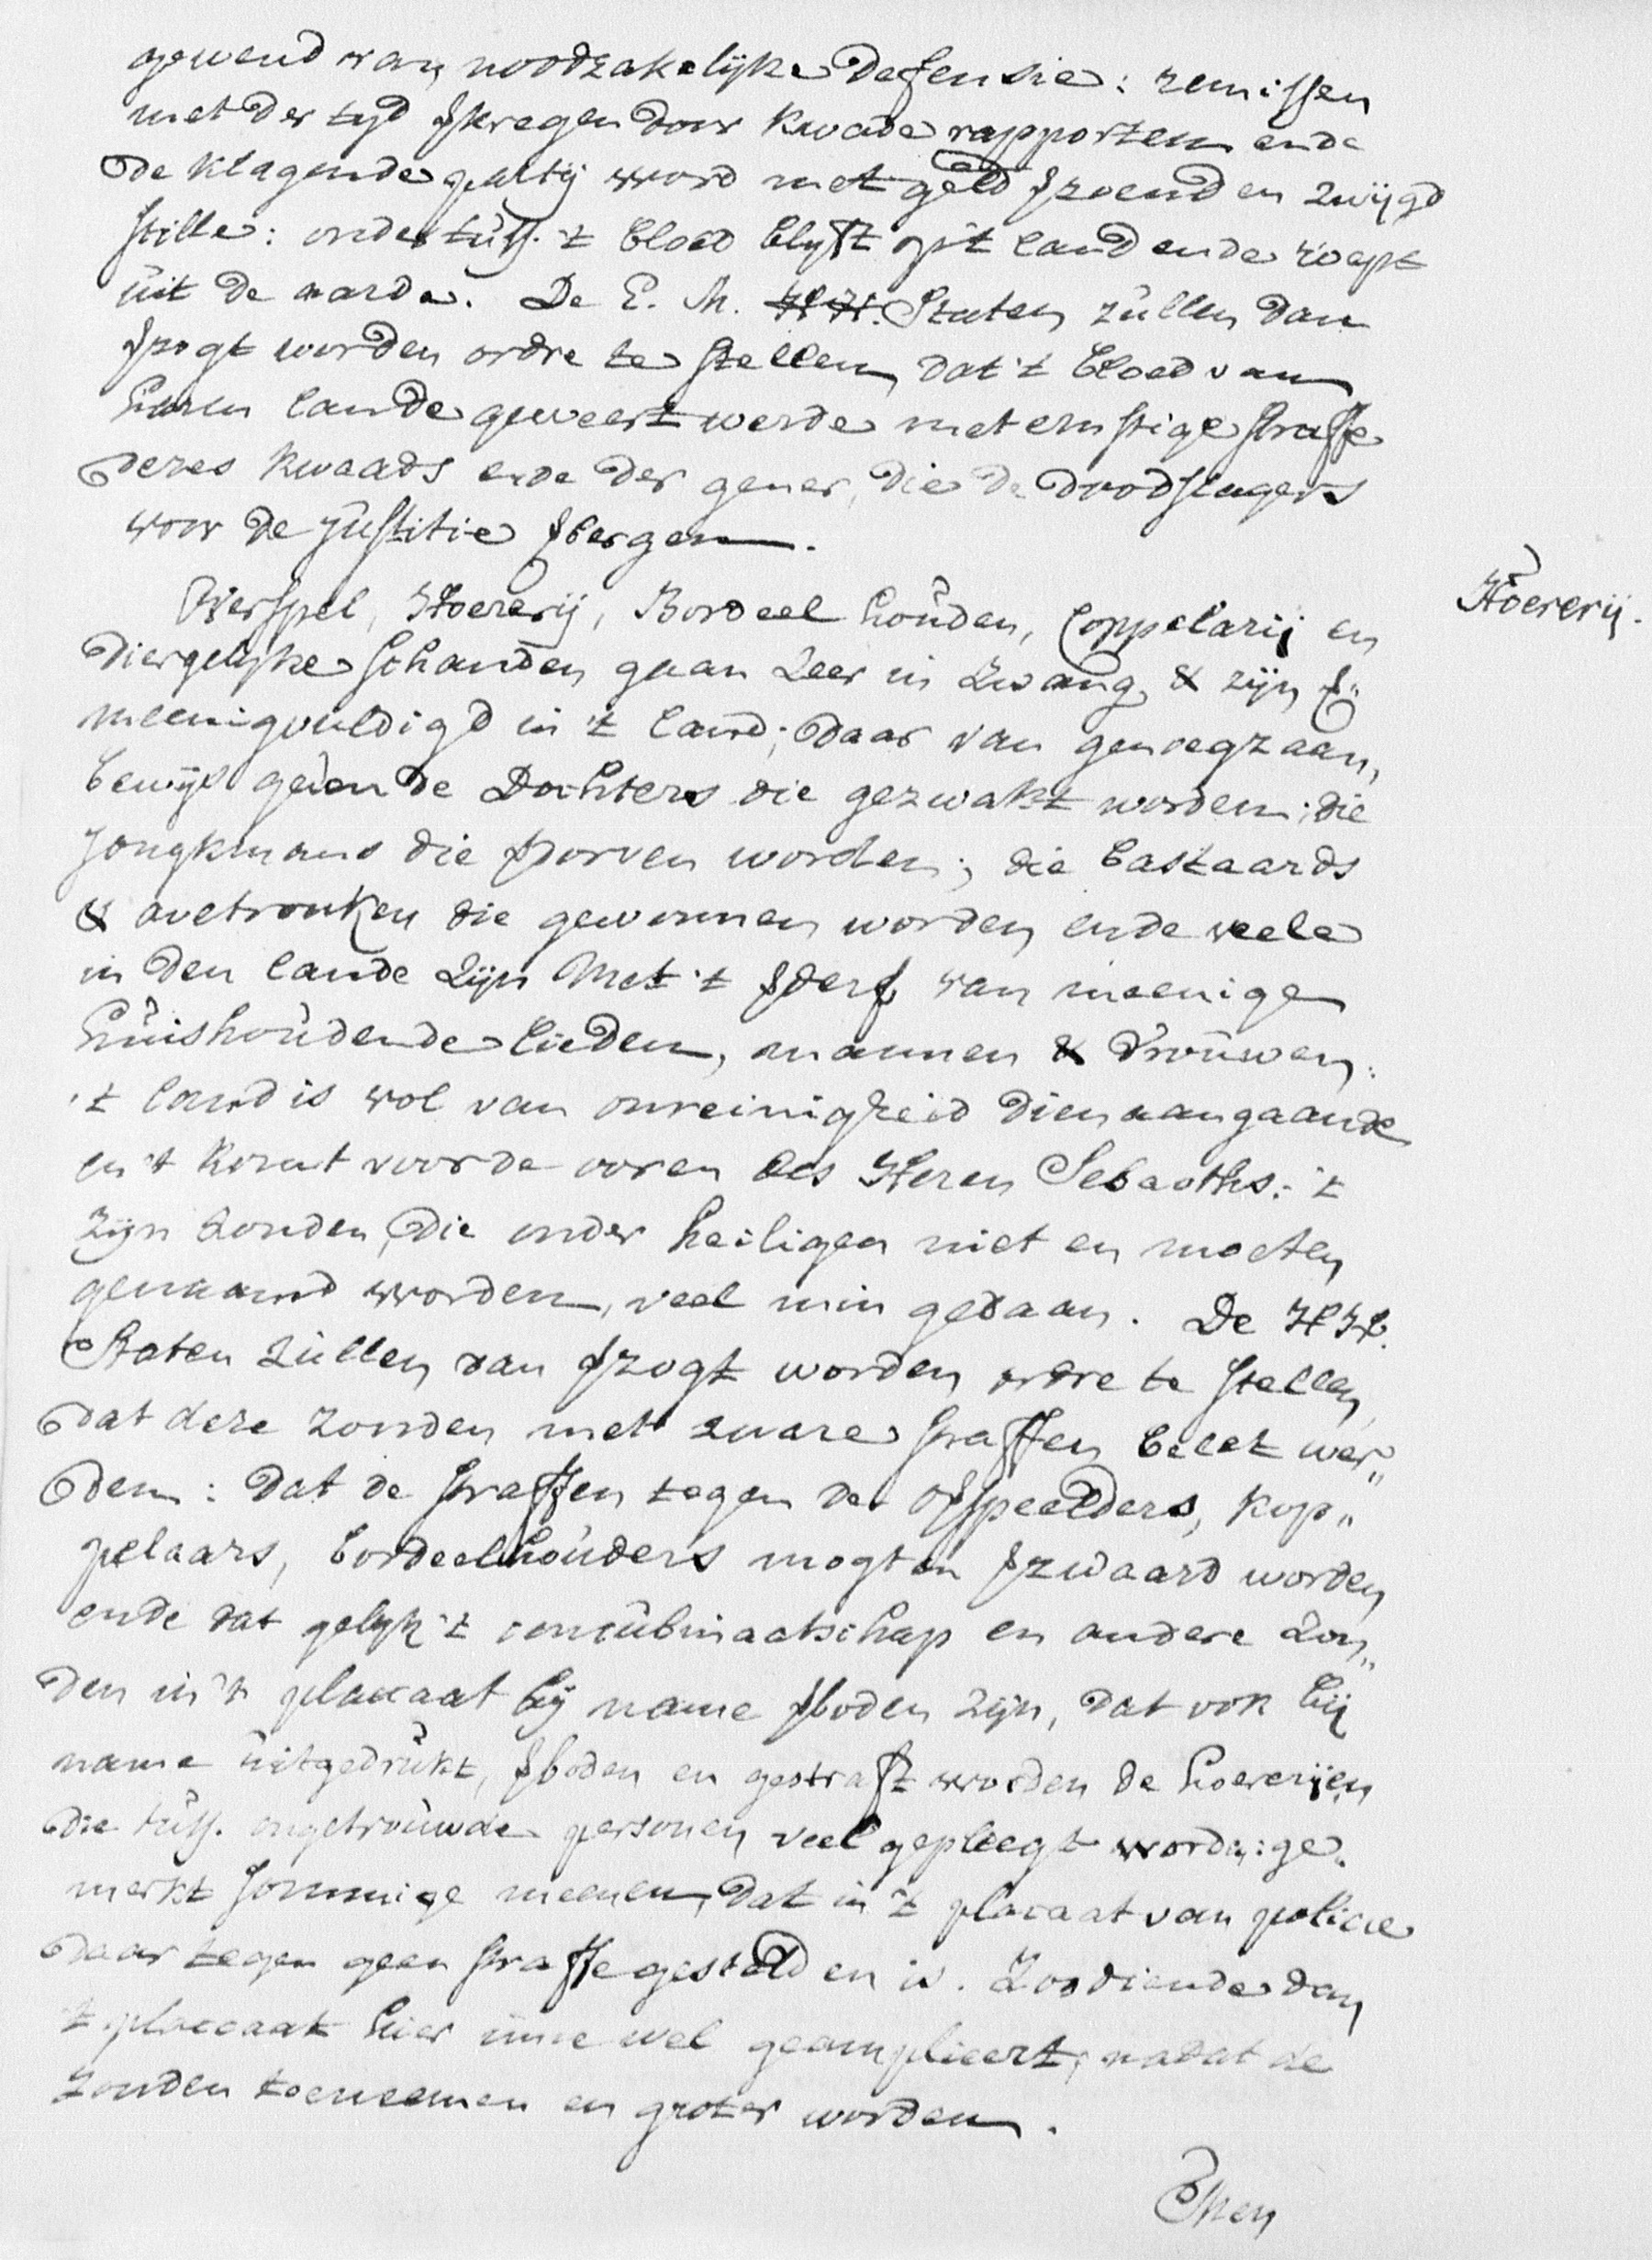 gewend van noodzakelijke Defensie: remissen
met der tyd ƒkregen door kwade rapporten ende
de klagende partij word met geld ƒzoend en zwijgd
stille: ondertuss. 't bloed blyft op 't land ende roept
uit de aarde. De E. M. H.H. Staten zullen dan
ƒzogt worden ordre te stellen, dat 't bloed van
haren lande geweert werde met ernstige straffe
dezes kwaads ende der gener, die de doodslagers
voor de justitie ƒbergen.
Hoererij.
Overspel, Hoererij, Bordeel houden, Coppelarij en
diergelyke schanden gaan zeer in zwang, & zijn ƒ„
meenigvuldigd in 't land; daar van genoegzaam,
bewijs geven de Dochters die gezwakt worden; die
jongkmans die ƒdorven worden; die bastaards
& avetronken die gewonnen worden ende veele
in den lande zijn Met 't ƒderf van meenige
huishoudende lieden, mannen & vrouwen.
't land is vol van onreinigheid dien aangaande
en 't komt voor de ooren des Heren Sebaoths: 't
zijn zonden, die onder heiligen niet en moeten
genaamd worden, veel min gedaan. De H.H.
Staten zullen dan ƒzogt worden ordre te stellen,
dat deze zonden met zware straffen belet wer„
den: dat de straffen tegen de ofspeelders, kop„
pelaars, bordeelhouders mogten ƒzwaard worden
ende dat gelyk 't concubinaatschap en andere zon„
den in 't placcaat bij name ƒboden zijn, dat ook bij
name uitgedrukt, ƒboden en gestraft worden de hoererijen
die tuss. ongetrouwde personen veel gepleegt worden: ge„
merkt sommige meenen, dat in 't placaat van policie
daar tegen geen straffe gesteld en is. Zoo diende dan
't placcaat hier inne wel geamplieert, nadat de
zonden toeneemen en groter worden.
Men